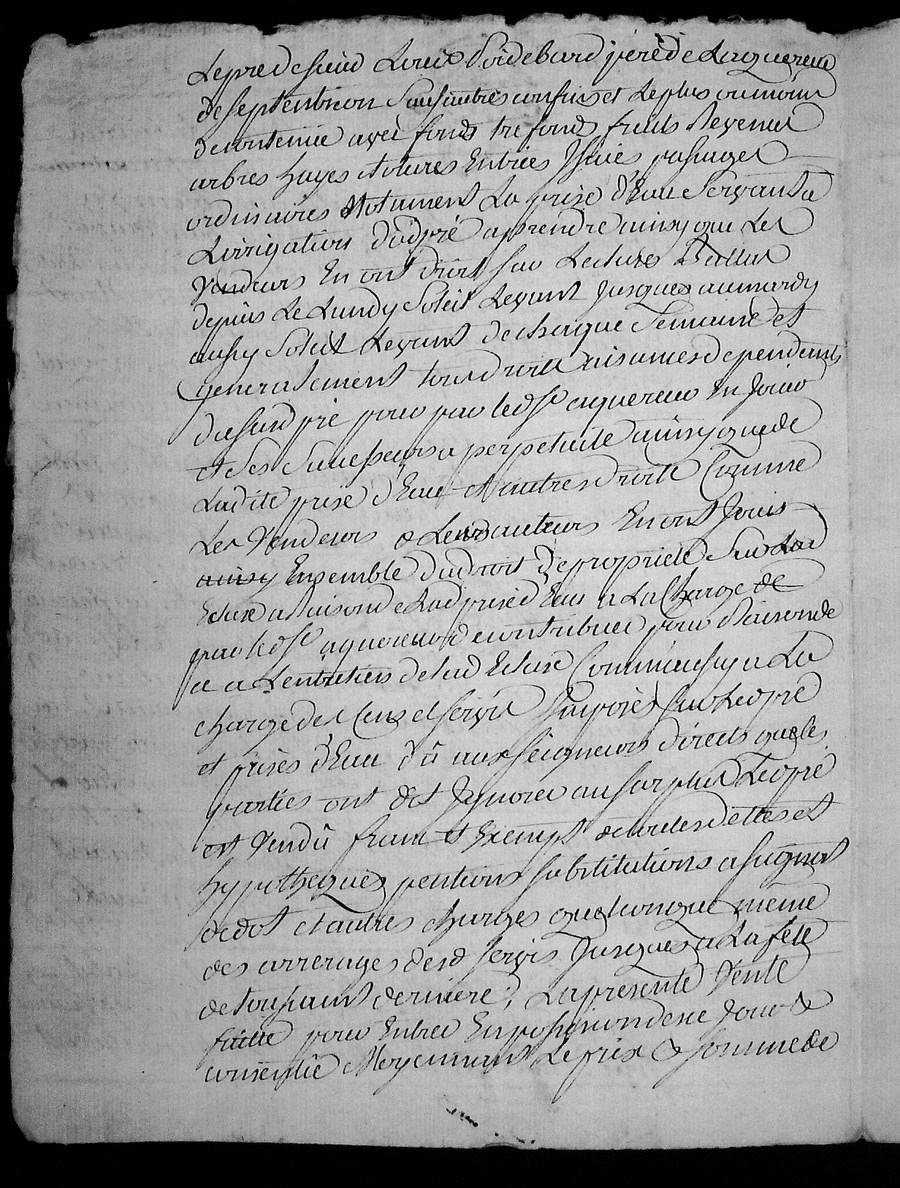 Le pré de sieur Louis Soidebard père de Lacquereur
de septentrion sauf autres confins et le plus ou moins
de contenue avec fonds trefonds fruits Revenus
arbres hayes clotures Entrées Issues passages
ordinaires Notament La prise d'Eau Servant a
Lirrigation dudpré a prendre ainsy que Les
Vendeurs En ont droit sur Lecluse
depuis Le Lundy Soleil Levant Jusques au mardy
aussy Soleil Levant de chaque Semaine et
generalement tous droits aisances dependants
dususd pré pour par led Sr aquereur En Jouir
et Ses Successeurs a perpetuité ainsy que de
Ladite prise d'Eau et autres droits Comme
Les Vendeurs & Leurs auteurs En ont Jouis
ainsy Ensemble du droit de propriété Sur Lad
Ecluse a Raison de Lad prise d'Eau a La Charge de
par led Sr aquereur de contribuer pour Raison de
ce a Lentretien de lad Ecluse Comme aussy a La
charge des Cens et servis Imposés sur Led pré
et prises d'Eau dû aux seigneurs directs que les
parties ont dit Ignorer au surplus Led pré
est Vendû franc et Exempt de toutes dettes et
hypotheques pentions substitutions assignat
de dot et autres charges quelconque même
des arrerages desd servis Jusques a La fête
de toussaint derniere; La presente Vente
faitte pour Entrer En possession de ce jour &
consentie Moyennant Le prix & somme de